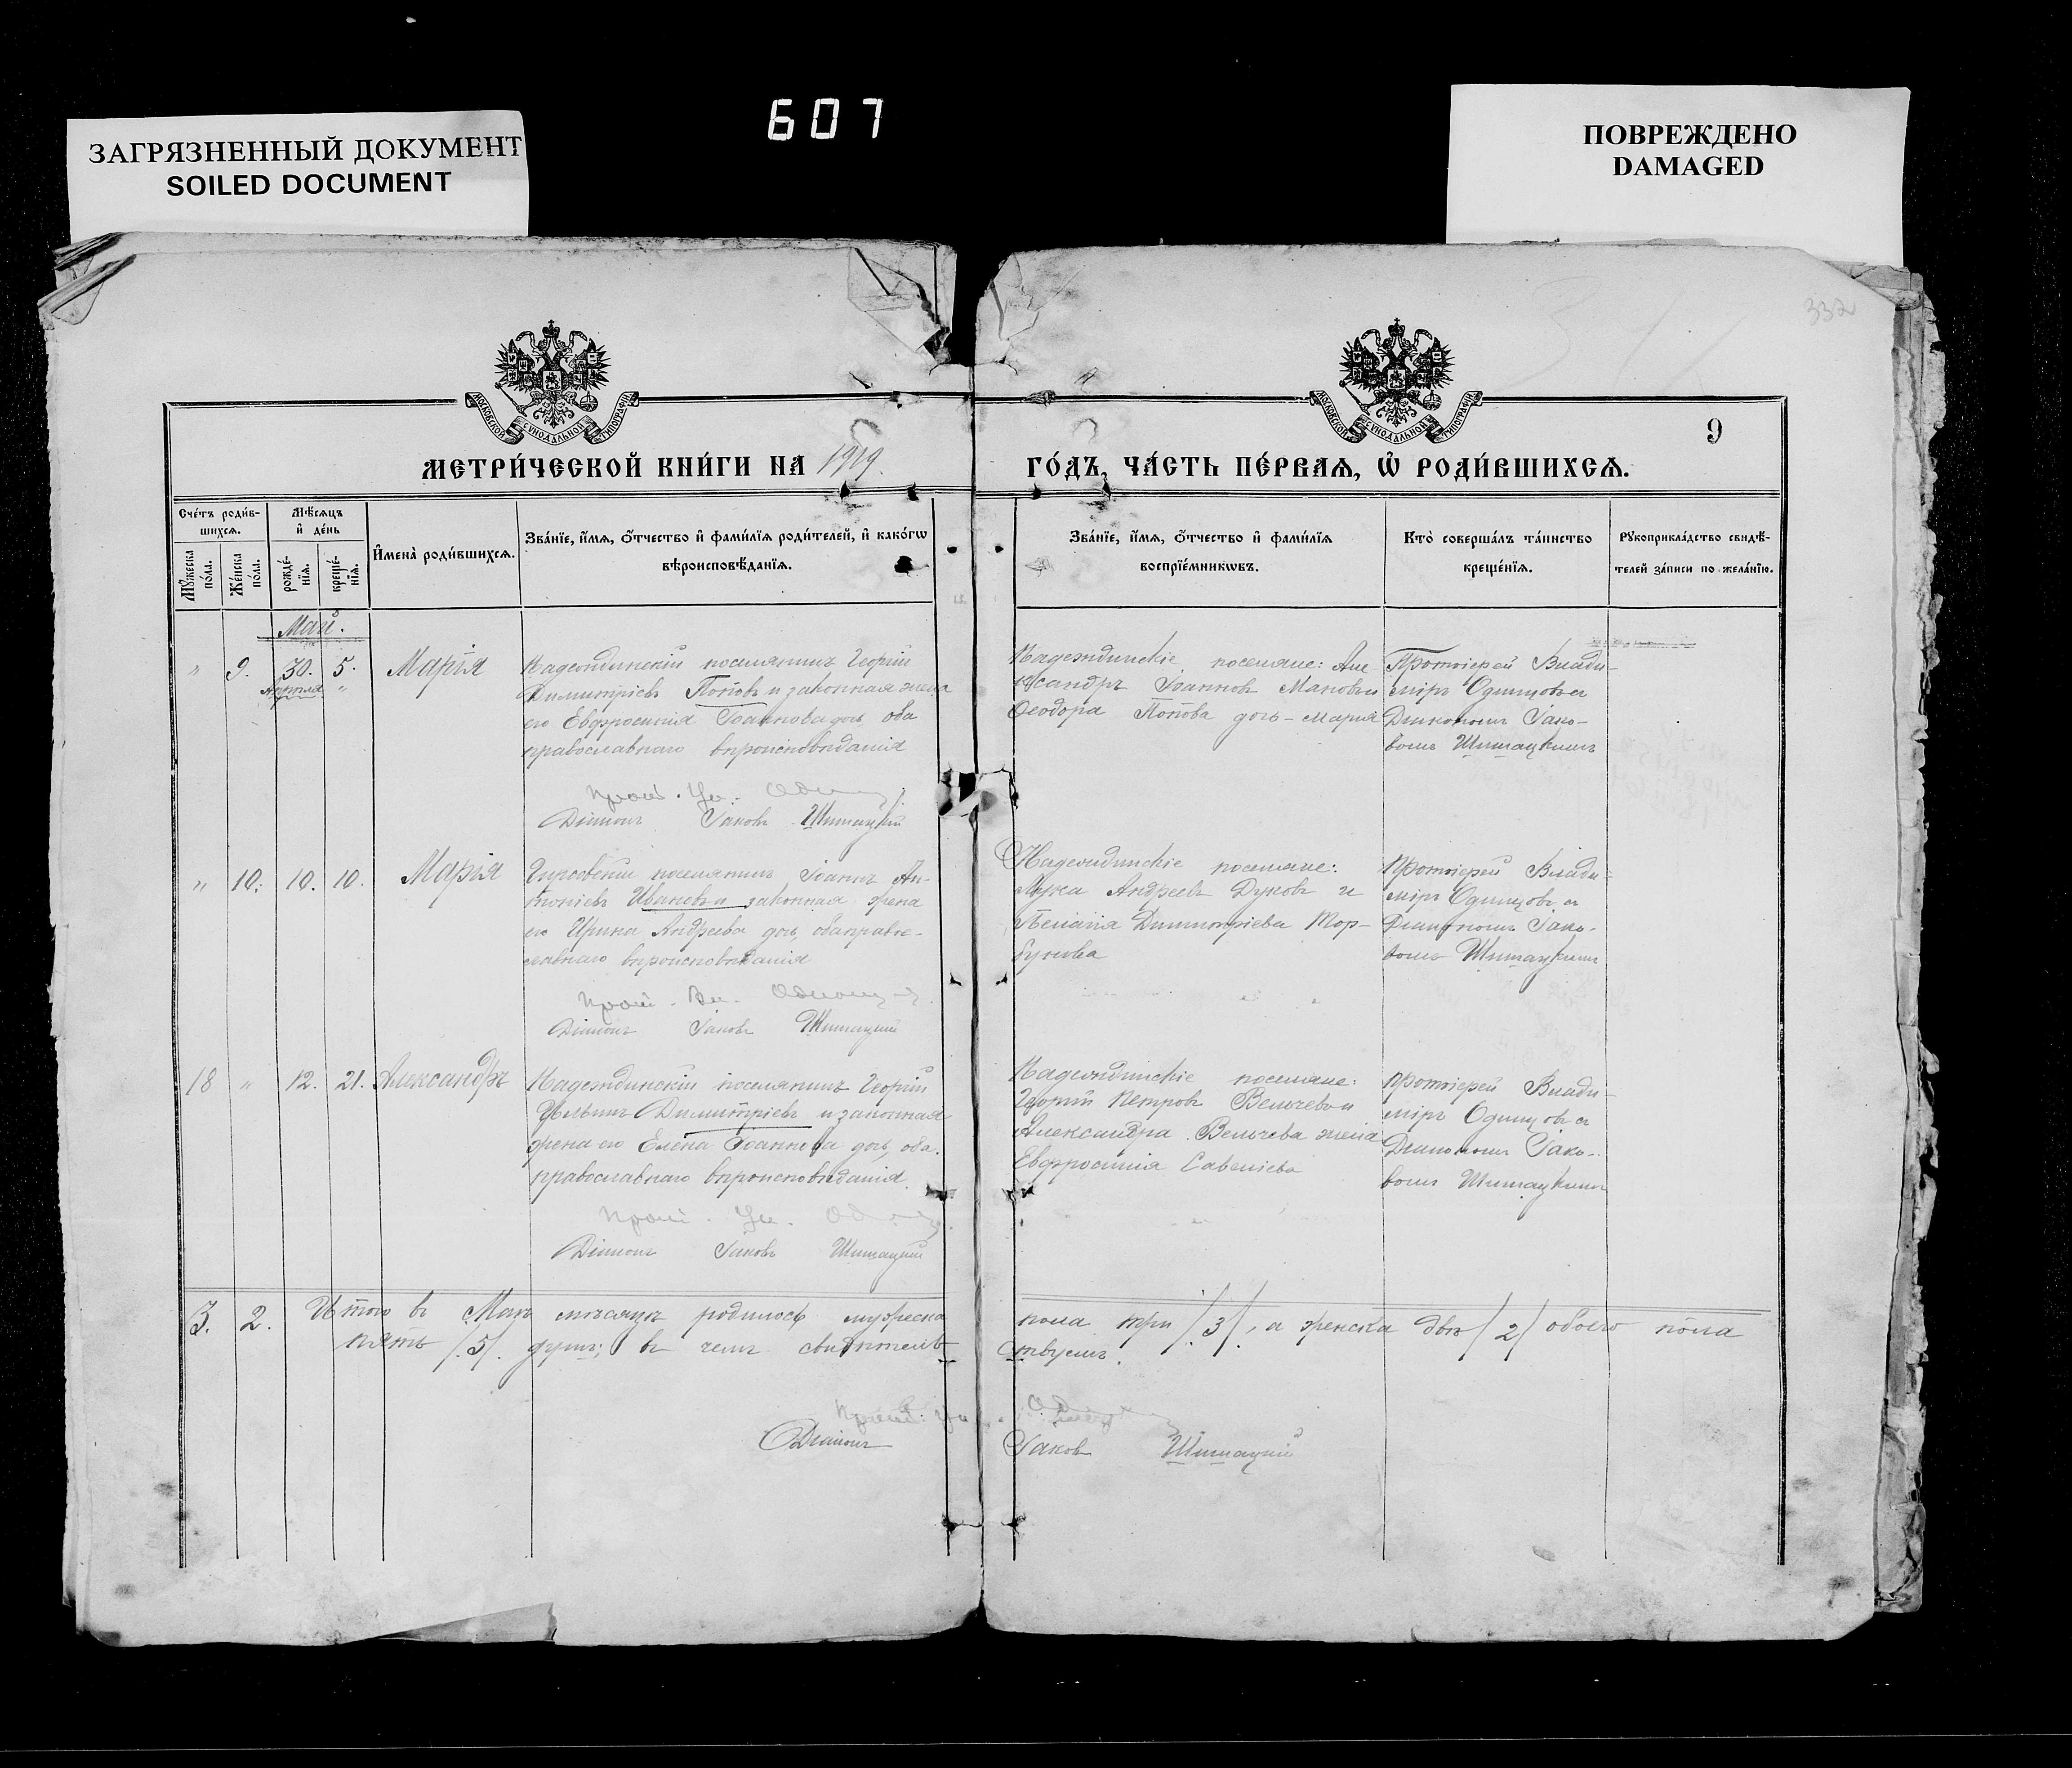 607
ЗАГРЯЗНЕННЫЙ ДОКУМЕНТ
SOILED DOCUMENT
ПОВРЕЖДЕНО
DAMAGED
332
МОСКОВСКОЙ СУНОДАЛЬНОЙ ТИПОГРАФІИ
МОСКОВСКОЙ СУНОДАЛЬНОЙ ТИПОГРАФІИ
9
МЕТРИ́ЧЕСКОЙ КНИ́ГИ НА 1919.
ГО́ДЪ, ЧА́СТЬ ПЕ́РВАѦ, Ѡ҆ РОДИ́ВШИХСѦ.
Сче́тъ роди́в-
шихсѧ.
Мꙋ́жеска по́ла.
Же́нска по́ла.
Мѣ́сѧцъ
и҆ де́нь
рожде́-
нїѧ.
креще́-
нїѧ.
И҆мена̀ роди́вшихсѧ.
Зва́нїе, и҆́мѧ, ѻ҆́тчество и҆ фами́лїѧ роди́телей, и҆ како́гѡ
вѣроисповѣ́данїѧ.
Зва́нїе, и҆́мѧ, ѻ҆́тчество и҆ фами́лїѧ
воспрїе́мникѡвъ.
Кто̀ соверша́лъ та́инство
креще́нїѧ.
Рꙋкоприкла́дство свидѣ́-
телей за́писи по жела́нїю.
Май.
" 9. 30. 5. Марія
Апрѣля "
Надеждинскій поселянинъ Георгій
Димитріевъ Поповъ и законная жена
его Евфросинія Іоаннова дочь, оба
православнаго вѣроисповѣданія
Прот. Вл. Один
Діаконъ Іаковъ Шишацкій
Надеждинскіе поселяне: Але
ксандръ Іоанновъ Маковъ и
Ѳеодора Попова дочь - Марія
Протоіерей Влади-
міръ Одинцовъ съ
Діакономъ Іако-
вомъ Шишацкимъ
" 10. 10. 10. Марія
поселянинъ Іоаннъ Ан-
тоніевъ Ивановъ и законная жена
его Ирина Андреева дочь, оба право-
славнаго вѣроисповѣданія
Прот. Вл. Одинцовъ
Діаконъ Іаковъ Шишацкій
Надеждинскіе поселяне:
Лука Андреевъ Дуковъ и
Пелагія Димитріева Тор-
букова
Протоіерей Влади-
міръ Одинцовъ съ
Діакономъ Іако-
вомъ Шишацкимъ
18 " 12. 21. Александръ
Надеждинскій поселянинъ Георгій
Димитріевъ и законная
жена его Елена Іоаннова дочь, оба
православнаго вѣроисповѣданія
Прот. Вл. Од
Діаконъ Іаковъ Шишацкій
Надеждинскіе поселяне:
Георгій Петровъ Вельчевъ и
Александра Вельчева жена
Евфросинія Савеліева
Протоіерей Влади-
міръ Одинцовъ съ
Діакономъ Іако-
вомъ Шишацкимъ
3. 2. Итого въ Маѣ мѣсяцѣ родилось мужеска пола три /3/, а женска двѣ /2/ обоего пола
пять /5/. душъ; въ чемъ свидѣтель ствуемъ.
Прот. Вл. Один
Діаконъ Іаковъ Шишацкій